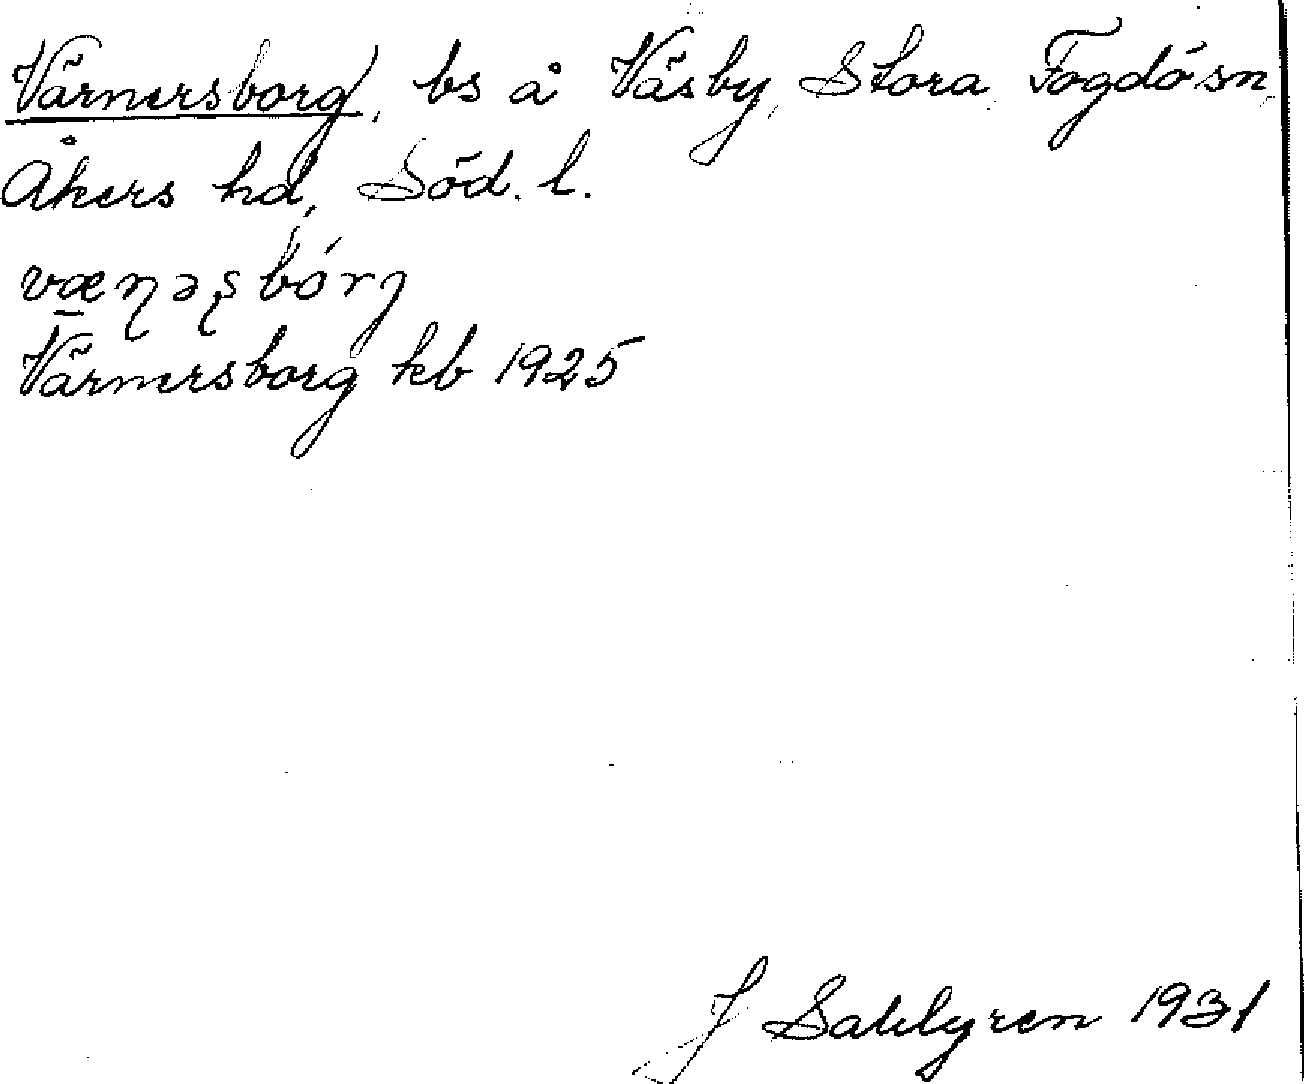 Värnersborg, bs å Väsby, Stora Fogdö sn,
Åkers hd, Söd. l.
væɳəʂbórj
Värnersborg kb 1925
J Sahlgren 1931